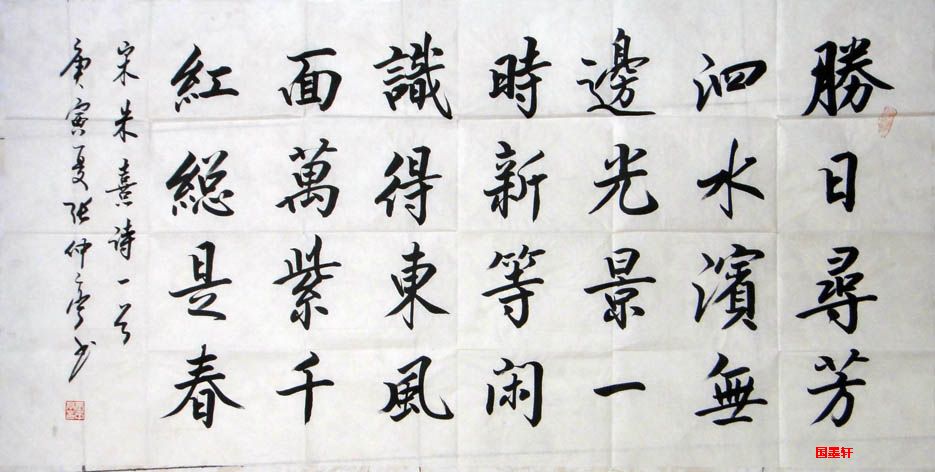 勝日尋芳
泗水濱無
邊光景一
時新等闲
識得東風
面萬紫千
紅総是春
宋朱熹诗一首
庚寅夏张仲亭书
国墨轩